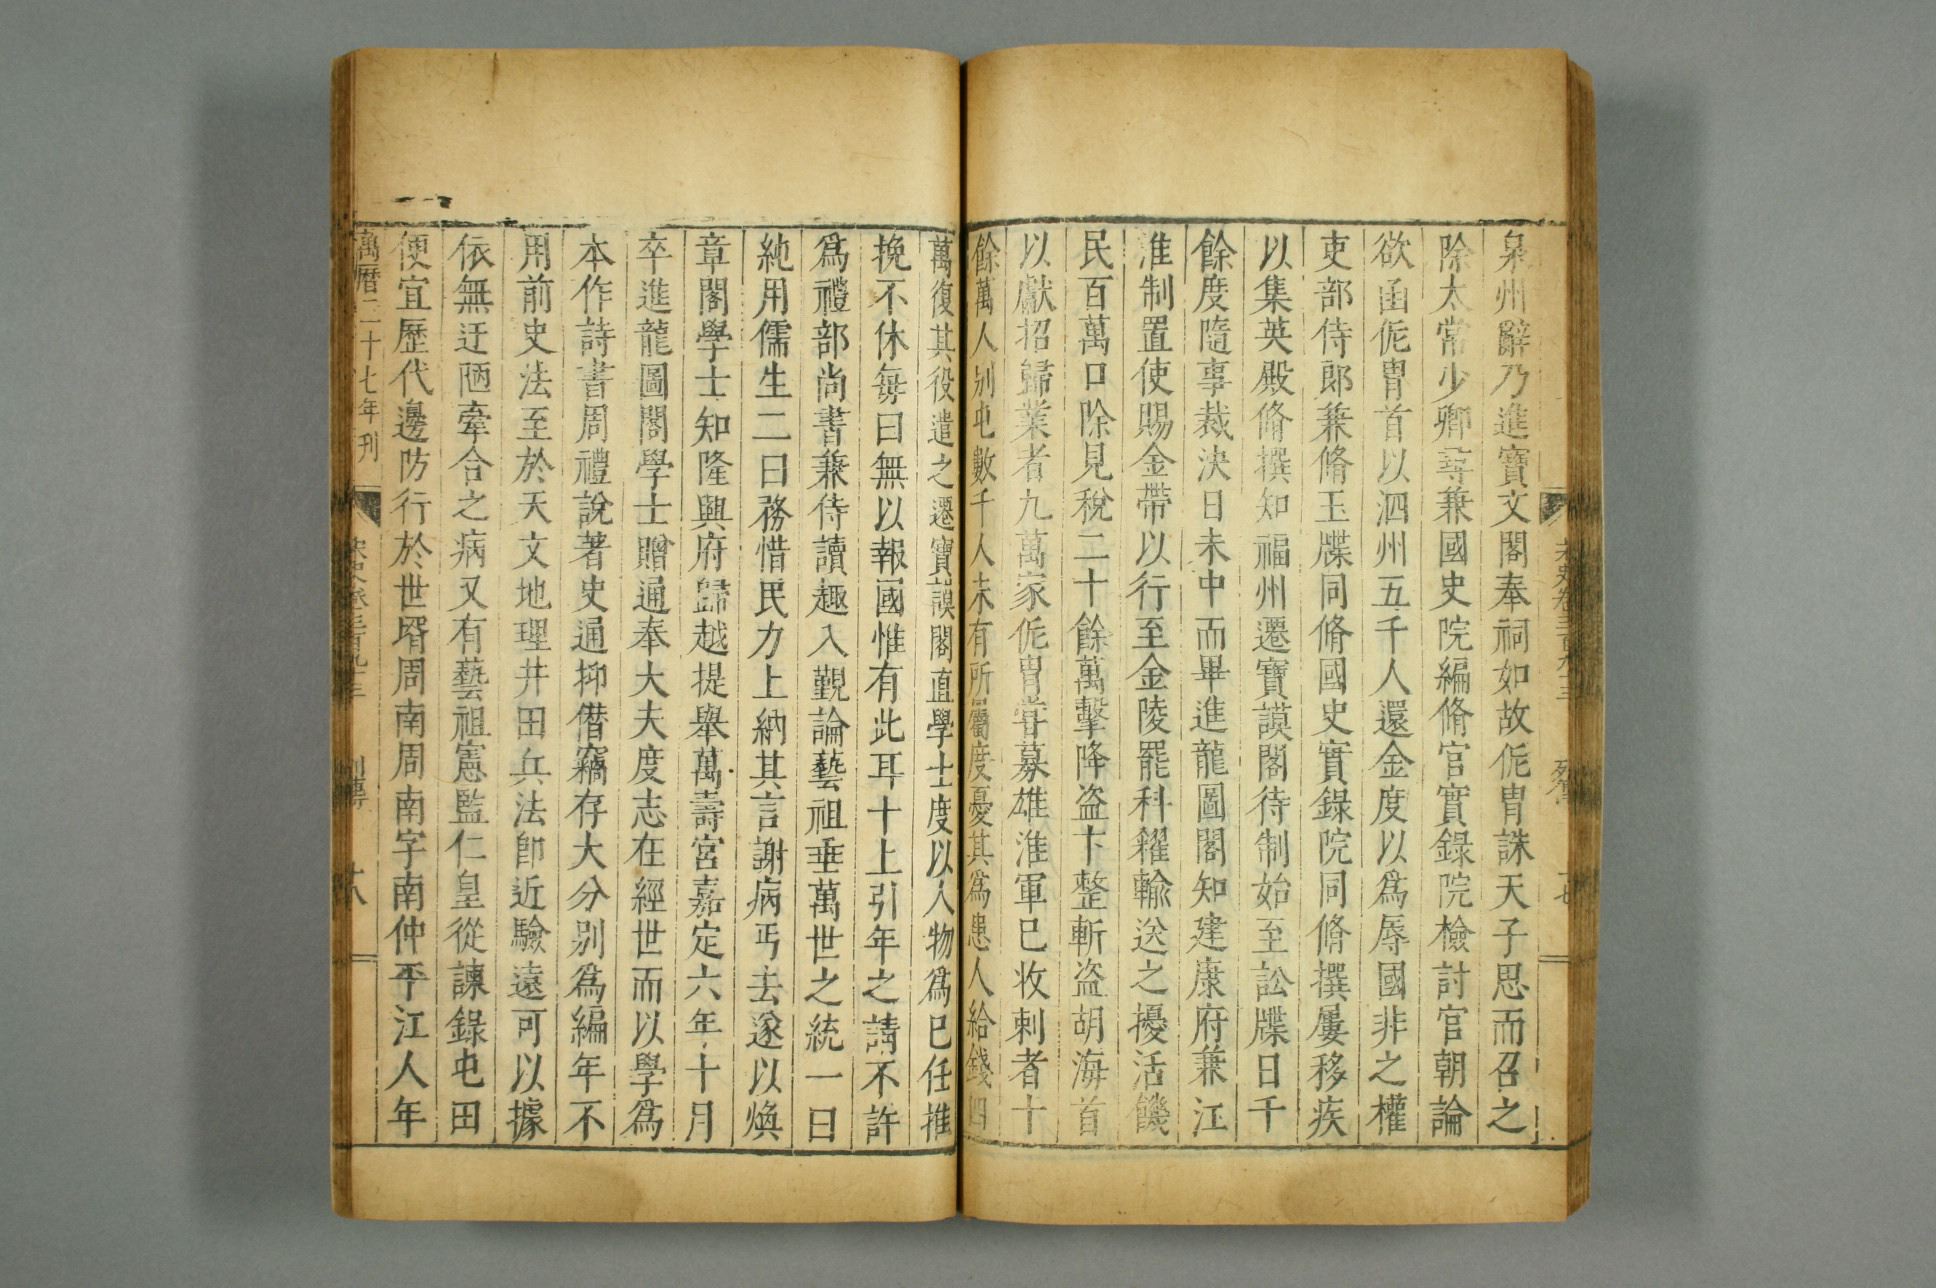 泉州辭乃進寶文閣奉祠如故侂胄誅天子思而召之
除太常少卿尋兼國史院編脩官實錄院檢討官朝論
欲函侂胄首以泗州五千人還金度以爲辱國非之權
吏部侍郎兼脩玉牒同脩國史實錄院同脩撰屢移疾
以集英殿脩撰知福州遷寶謨閣待制始至訟牒日千
餘度隨事裁決日未中而畢進龍圖閣知建康府兼江
淮制置使賜金帶以行至金陵罷科糴輸送之擾活饑
民百萬口除見稅二十餘萬擊降盜卞整斬盜胡海首
以獻招歸業者九萬家侂胄嘗募雄淮軍已收刺者十
餘萬人别屯數千人未有所屬度憂其爲患人給錢四
萬復其役遣之遷寶謨閣直學士度以人物爲己任推
挽不休每曰無以報國惟有此耳十上引年之請不許
爲禮部尚書兼侍讀趣入覲論藝祖垂萬世之統一曰
純用儒生二曰務惜民力上納其言謝病丐去遂以煥
章閣學士知隆興府歸越提舉萬壽宮嘉定六年十月
卒進龍圖閣學士贈通奉大夫度志在經世而以學爲
本作詩書周禮說著史通抑僭竊存大分别爲編年不
用前史法至於天文地理井田兵法卽近驗遠可以據
依無迂陋牽合之病又有藝祖憲監仁皇從諫錄屯田
便宜歷代邊防行於世壻周南周南字南仲平江人年
萬曆二十七年刊
宋史卷三百九十三 列傳 十八